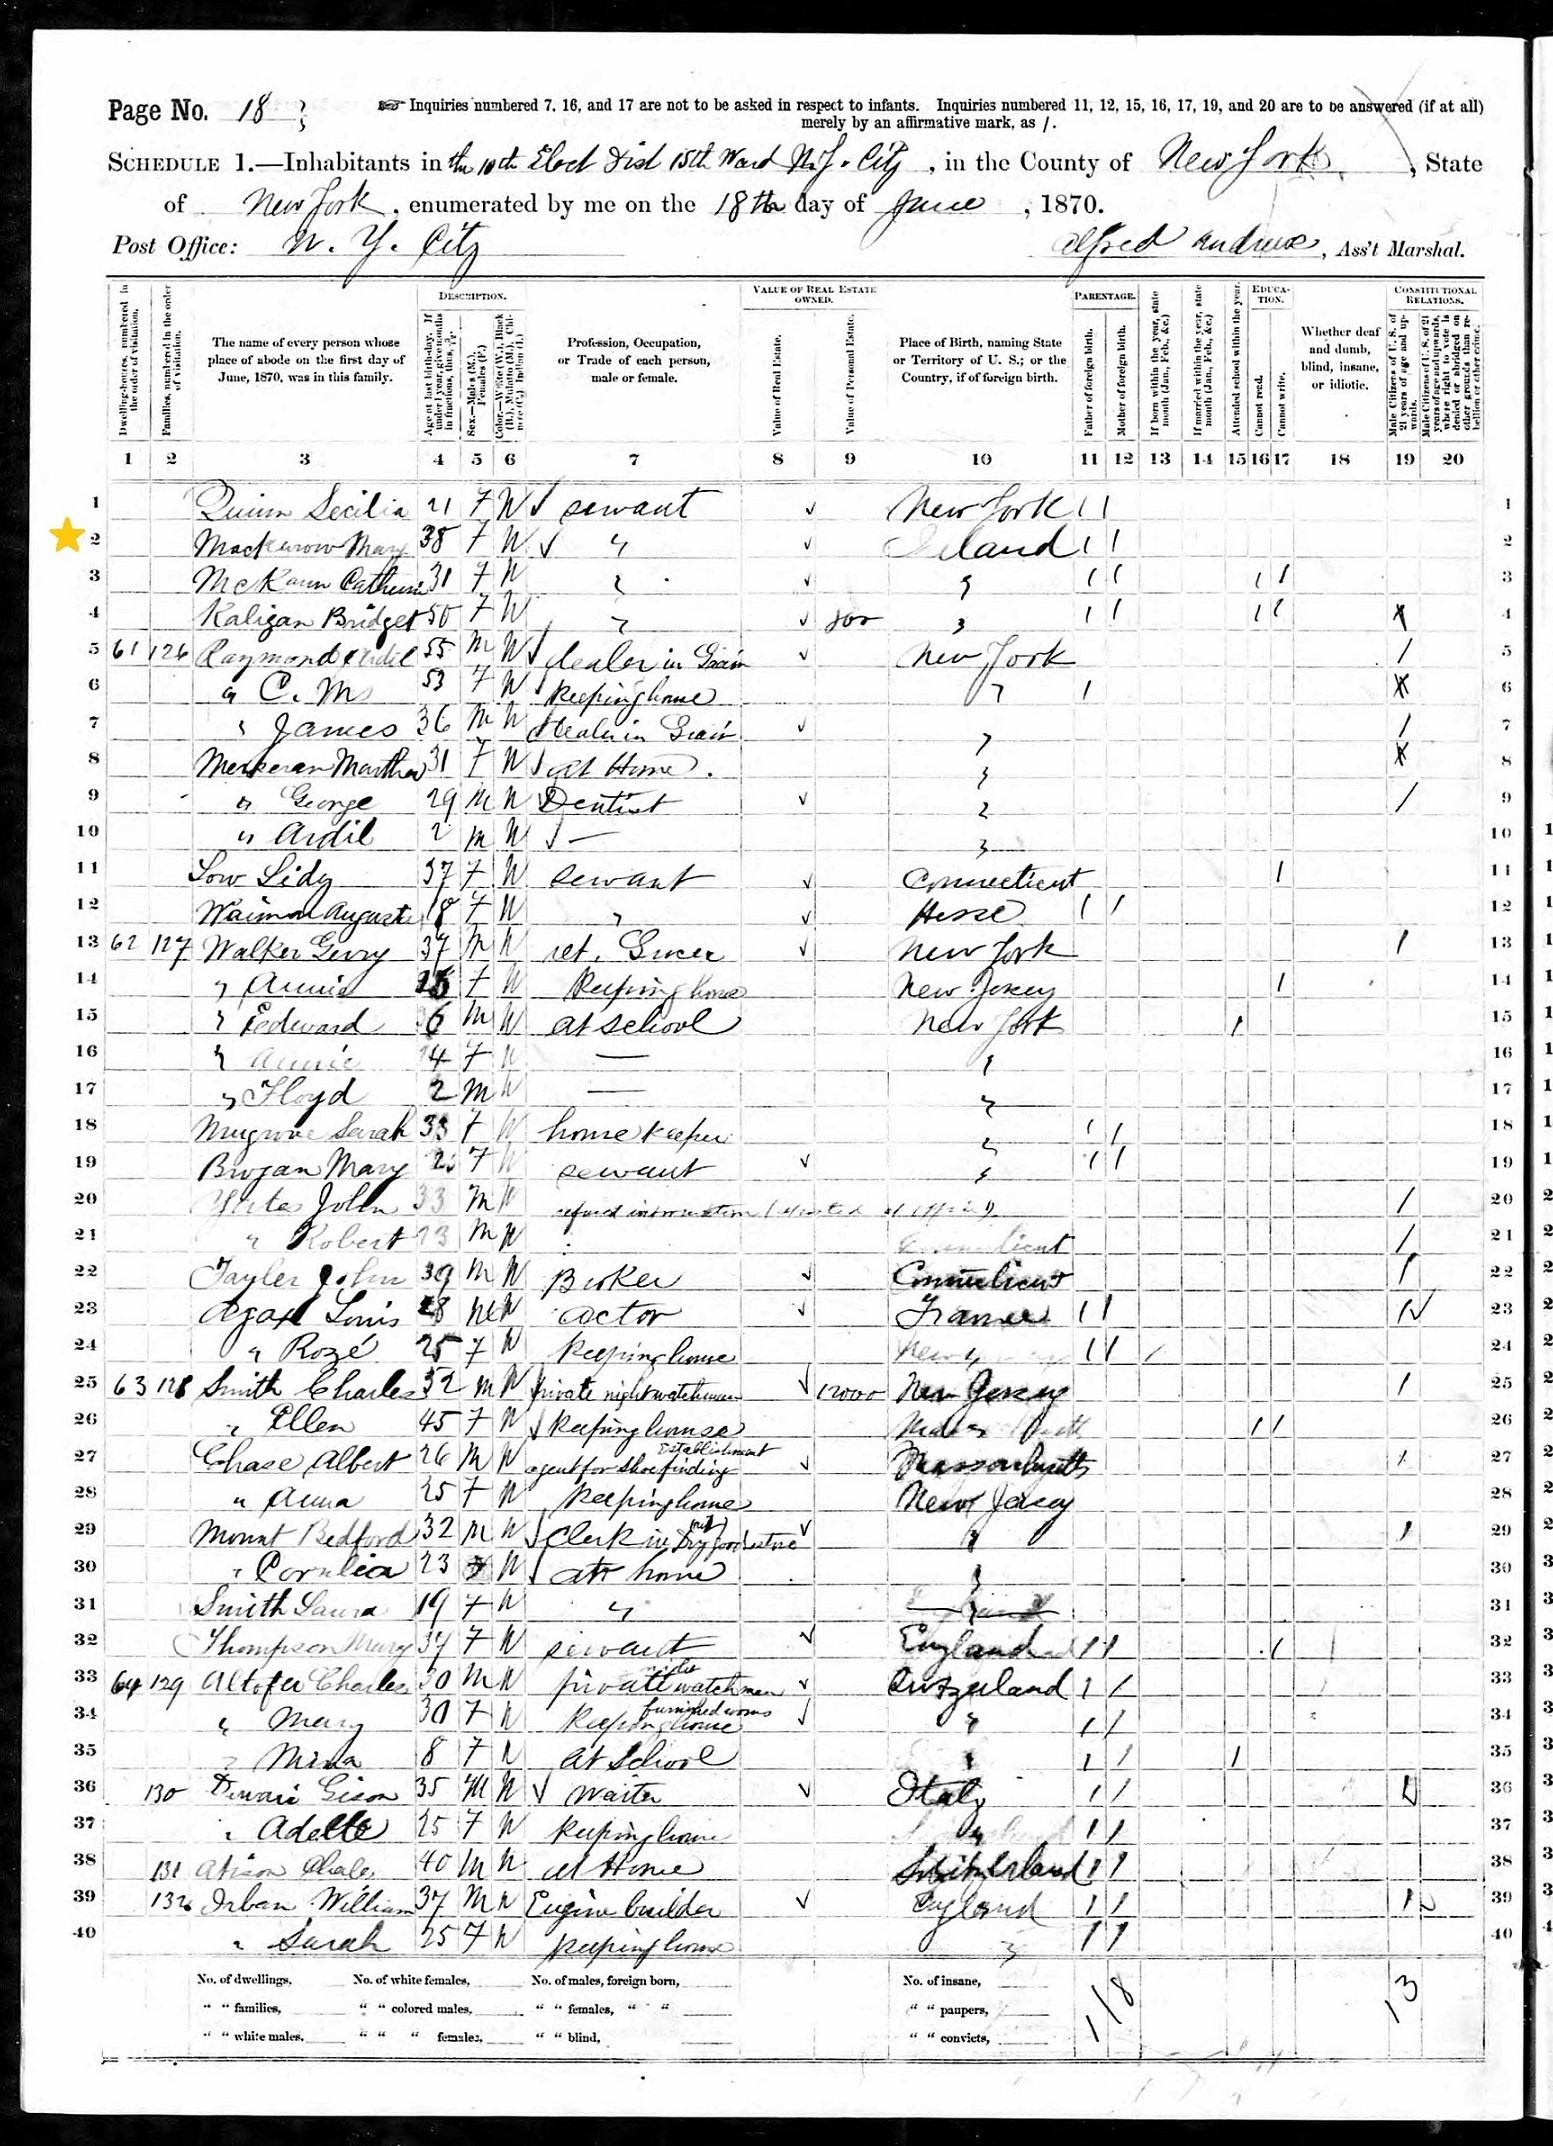 Page No. 18
Inquiries numbered 7, 16, and 17 are not to be asked in respect to infants. Inquiries numbered 11, 12, 15, 16, 17, 19, and 20 are to be answered (if at all)
merely by an affirmative mark, as /.
SCHEDULE 1.—Inhabitants in the 10th Elect Dist 15th Ward N.Y. City, in the County of New York, State
of New York, enumerated by me on the 18th day of June, 1870.
Post Office: N. Y. City Alfred Andrews, Ass't Marshal.
DESCRIPTION. VALUE OF REAL ESTATE OWNED. PARENTAGE. EDUCATION. CONSTITUTIONAL RELATIONS.
Dwelling-houses, numbered in the order of visitation.
Families, numbered in the order of visitation.
The name of every person whose place of abode on the first day of June, 1870, was in this family.
Age at last birth-day. If under 1 year, give months in fractions, thus,
Sex.—Males (M.), Females (F.)
Color.—White (W.), Black (B.), Mulatto (M.), Chinese (C.), Indian (I.)
Profession, Occupation, or Trade of each person, male or female.
Value of Real Estate.
Value of Personal Estate.
Place of Birth, naming State or Territory of U. S.; or the Country, if of foreign birth.
Father of foreign birth.
Mother of foreign birth.
If born within the year, state month (Jan., Feb., &c.)
If married within the year, state month (Jan., Feb., &c.)
Attended school within the year.
Cannot read.
Cannot write.
Whether deaf and dumb, blind, insane, or idiotic.
Male Citizens of U. S. of 21 years of age and upwards.
Male Citizens of U. S. of 21 years of age and upwards, whose right to vote is denied or abridged on other grounds than rebellion or other crime.
1 2 3 4 5 6 7 8 9 10 11 12 13 14 15 16 17 18 19 20
1 Quinn Secilia 21 F W servant New York / / 1
2 Mary 38 F W " Ireland / / 2
3 McKann 31 F W " " / / / / 3
4 Kaligan Bridget 50 F W " " / / / / 4
5 61 126 Raymond Ardil 55 M W dealer in Grain New York / 5
6 " C. M 53 F W Keeping house " / 6
7 " James 36 M W dealer in Grain " / 7
8 Martha 31 F W at Home " 8
9 " George 29 M W Dentist " / 9
10 " Ardil 2 M W — " 10
11 Low Lidy 37 F W servant Connecticut / 11
12 18 F W " Hesse / / 12
13 62 127 Walker 37 M W ret. Grocer New York / 13
14 " Annie F W Keeping house New Jersey / 14
15 " Edward 6 M W at school New York / 15
16 " Annie 4 F W — " 16
17 " Floyd 2 M W — " 17
18 Sarah 33 F W house keeper " / / 18
19 Brogan Mary F W servant " / / 19
20 Yates John 33 M W refused information / 20
21 " Robert 23 M W / 21
22 Tayler John 39 M W Broker Connecticut / 22
23 Louis 28 M W actor France / / 23
24 " Rozé 25 F W Keeping house / / 24
25 63 128 Smith Charles 52 M W private nightwatchman 12000 New Jersey / 25
26 " Ellen 45 F W Keeping house / / 26
27 Chase Albert 26 M W agent for Shoe finding Establishment Massachusetts / 27
28 " Anna 25 F W Keeping house New Jersey 28
29 Mount Bedford 32 M W Clerk in Dry good store " / 29
30 " Cornelia 23 F W at home " 30
31 Smith Laura 19 F W " " 31
32 Thompson Mary 37 F W servant England / / / 32
33 64 129 Altofer Charles 30 M W private watchman Switzerland / / 33
34 " Mary 30 F W Keeping house furnished rooms " / / 34
35 " Mina 8 F W at School " / / / 35
36 130 35 M W waiter Italy / / 36
37 " Adelle 25 F W Keeping house " / / 37
38 131 40 M W at Home Switzerland / / 38
39 132 William 37 M W Engine builder England / / 39
40 " Sarah 25 F W Keeping house " / / 40
No. of dwellings, No. of white females, No. of males, foreign born, No. of insane,
" " families, " " colored males, " " females, " " " " paupers,
" " white males, " " " females, " " blind, " " convicts,
18 13